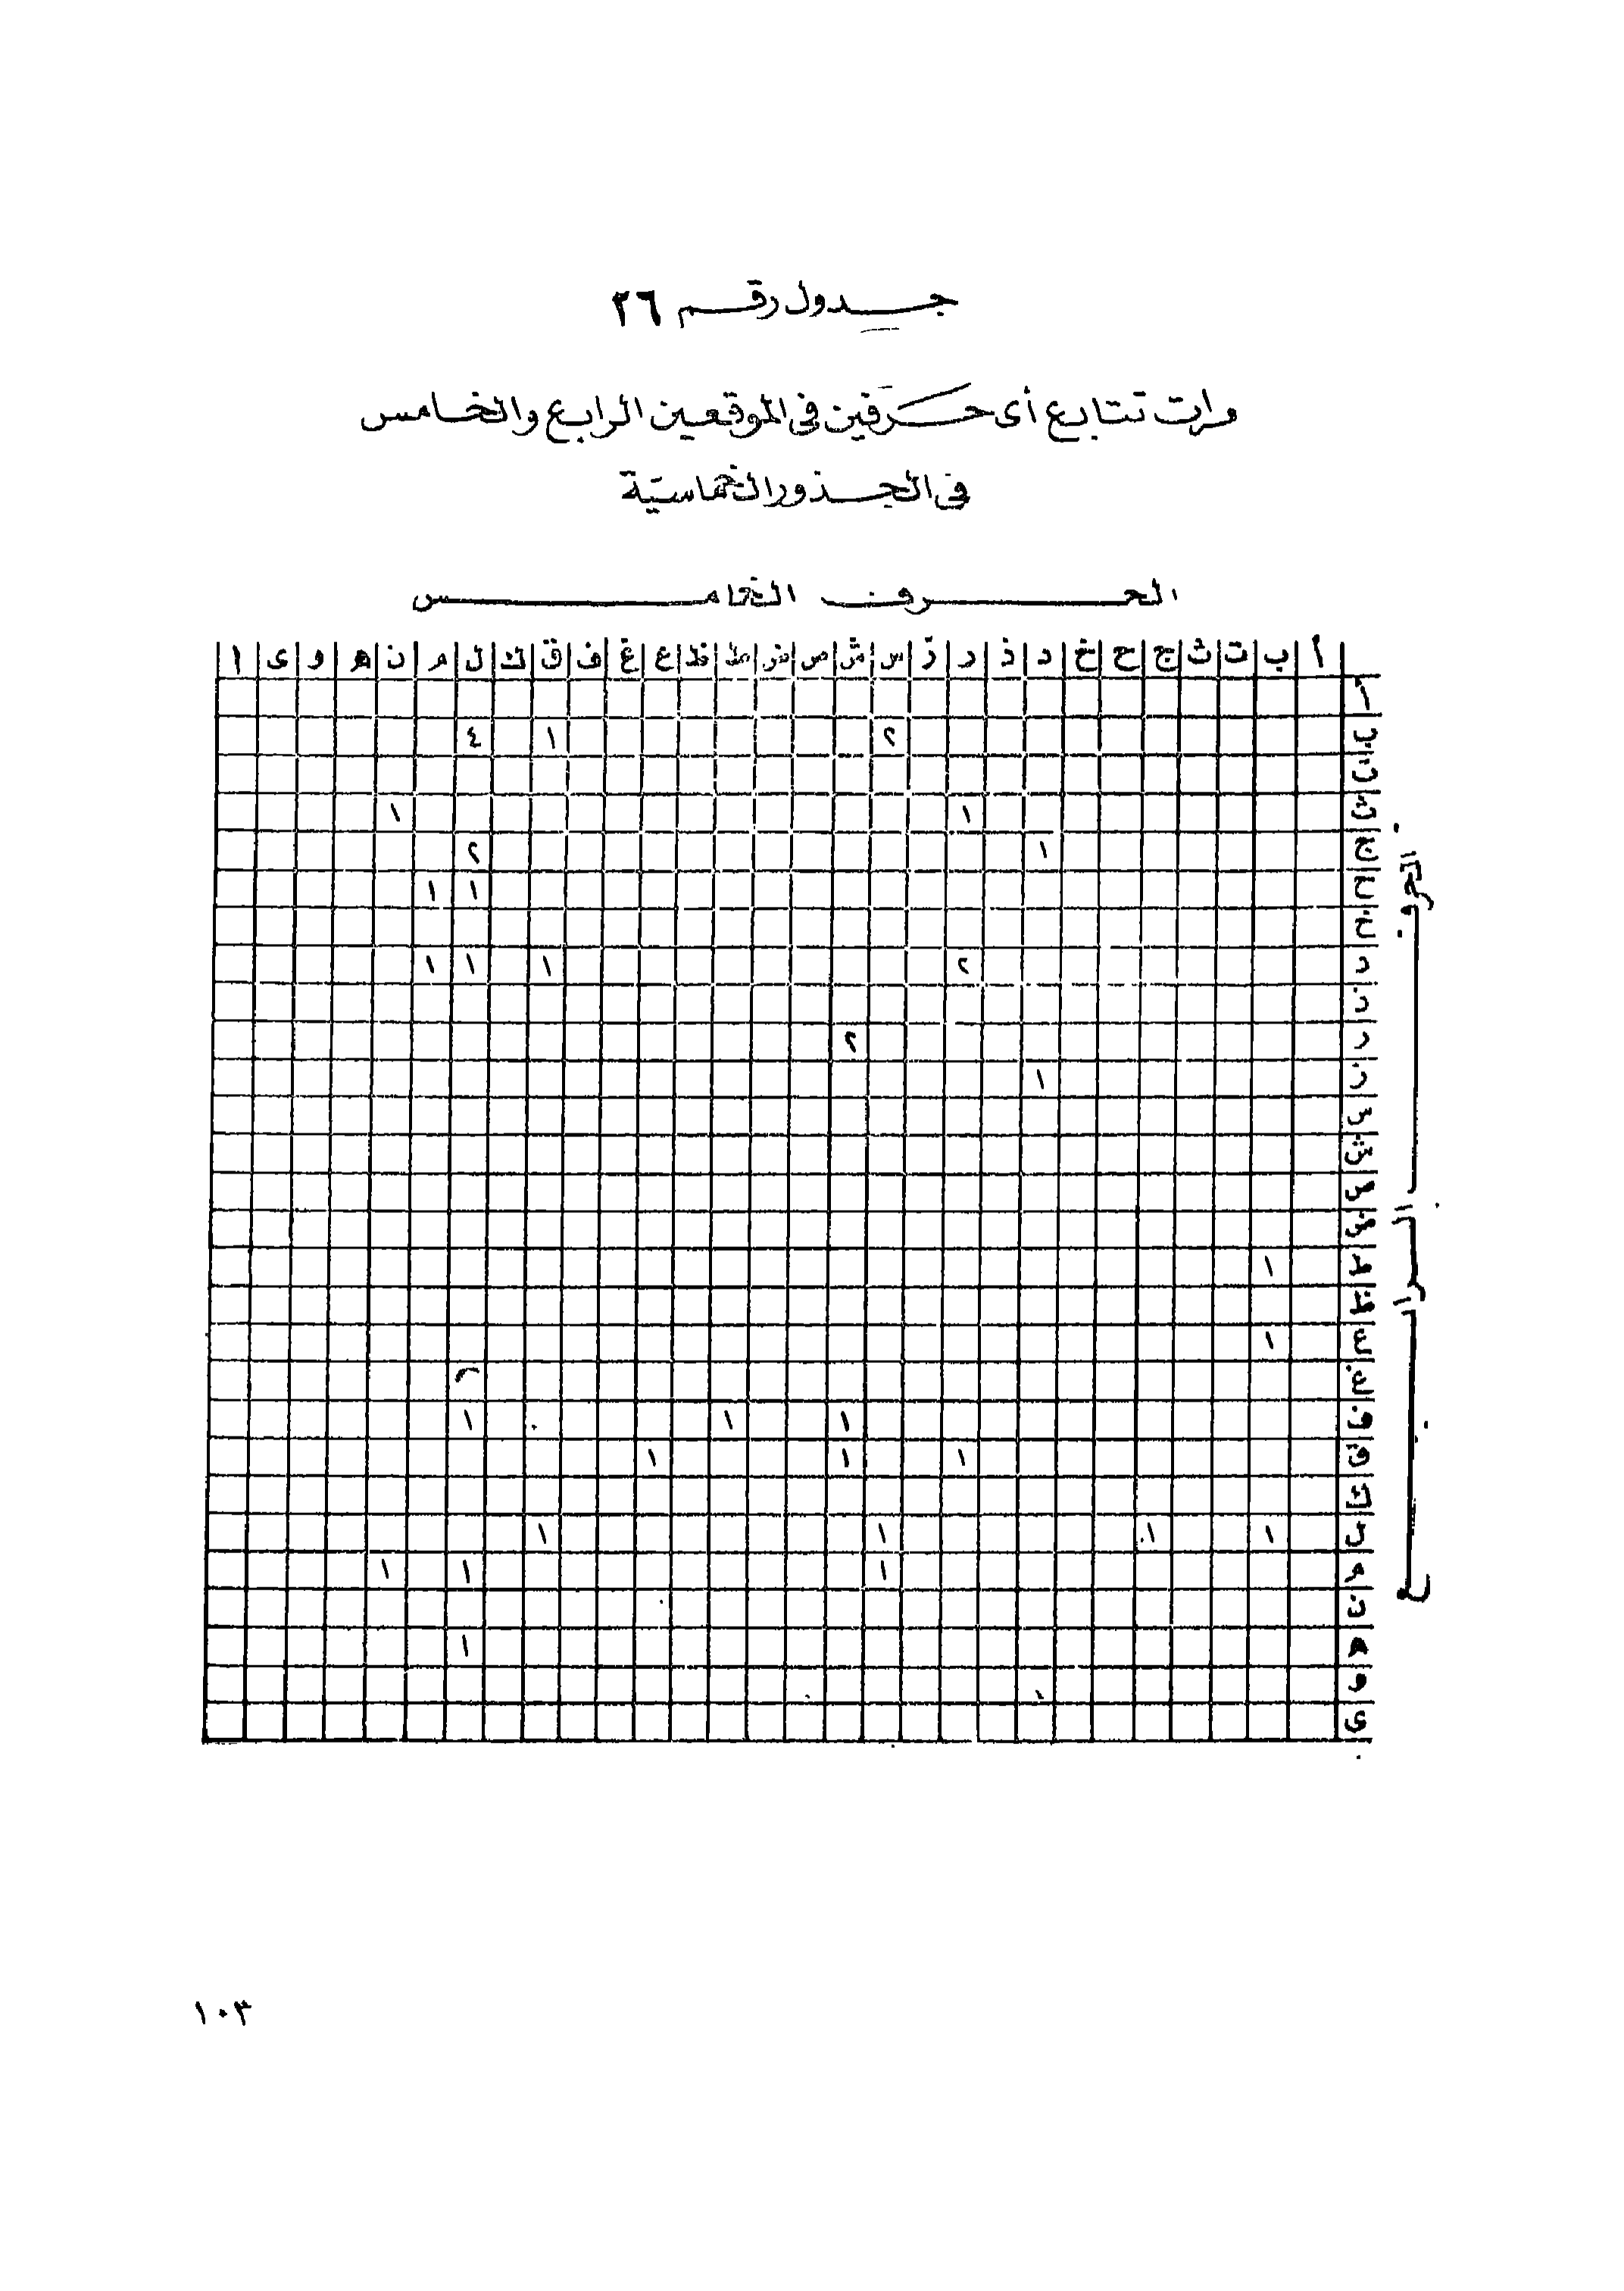 جدول رقم ٢٦
مرات تتابع أى حرفين فى الموقعين الرابع والخامس
فى الجذور الخماسية
الحرف الخامس
أ ب ت ث ج ح خ د ذ ر ز س ش ص ض ط ظ ع غ ف ق ك ل م ن هـ و ى ا
الحرف الرابع
أ
ب ٢ ١ ٤
ت
ث ١ ١
ج ١ ٢
ح ١ ١
خ
د ٢ ١ ١ ١
ذ
ر ٢
ز ١
س
ش
ص
ض
ط ١
ظ
ع ١
غ
ف ١ ١ ١
ق ١ ١ ١
ك
ل ١ ١ ١ ١
م ١ ١ ١
ن
هـ ١
و ١
ى
١٠٣